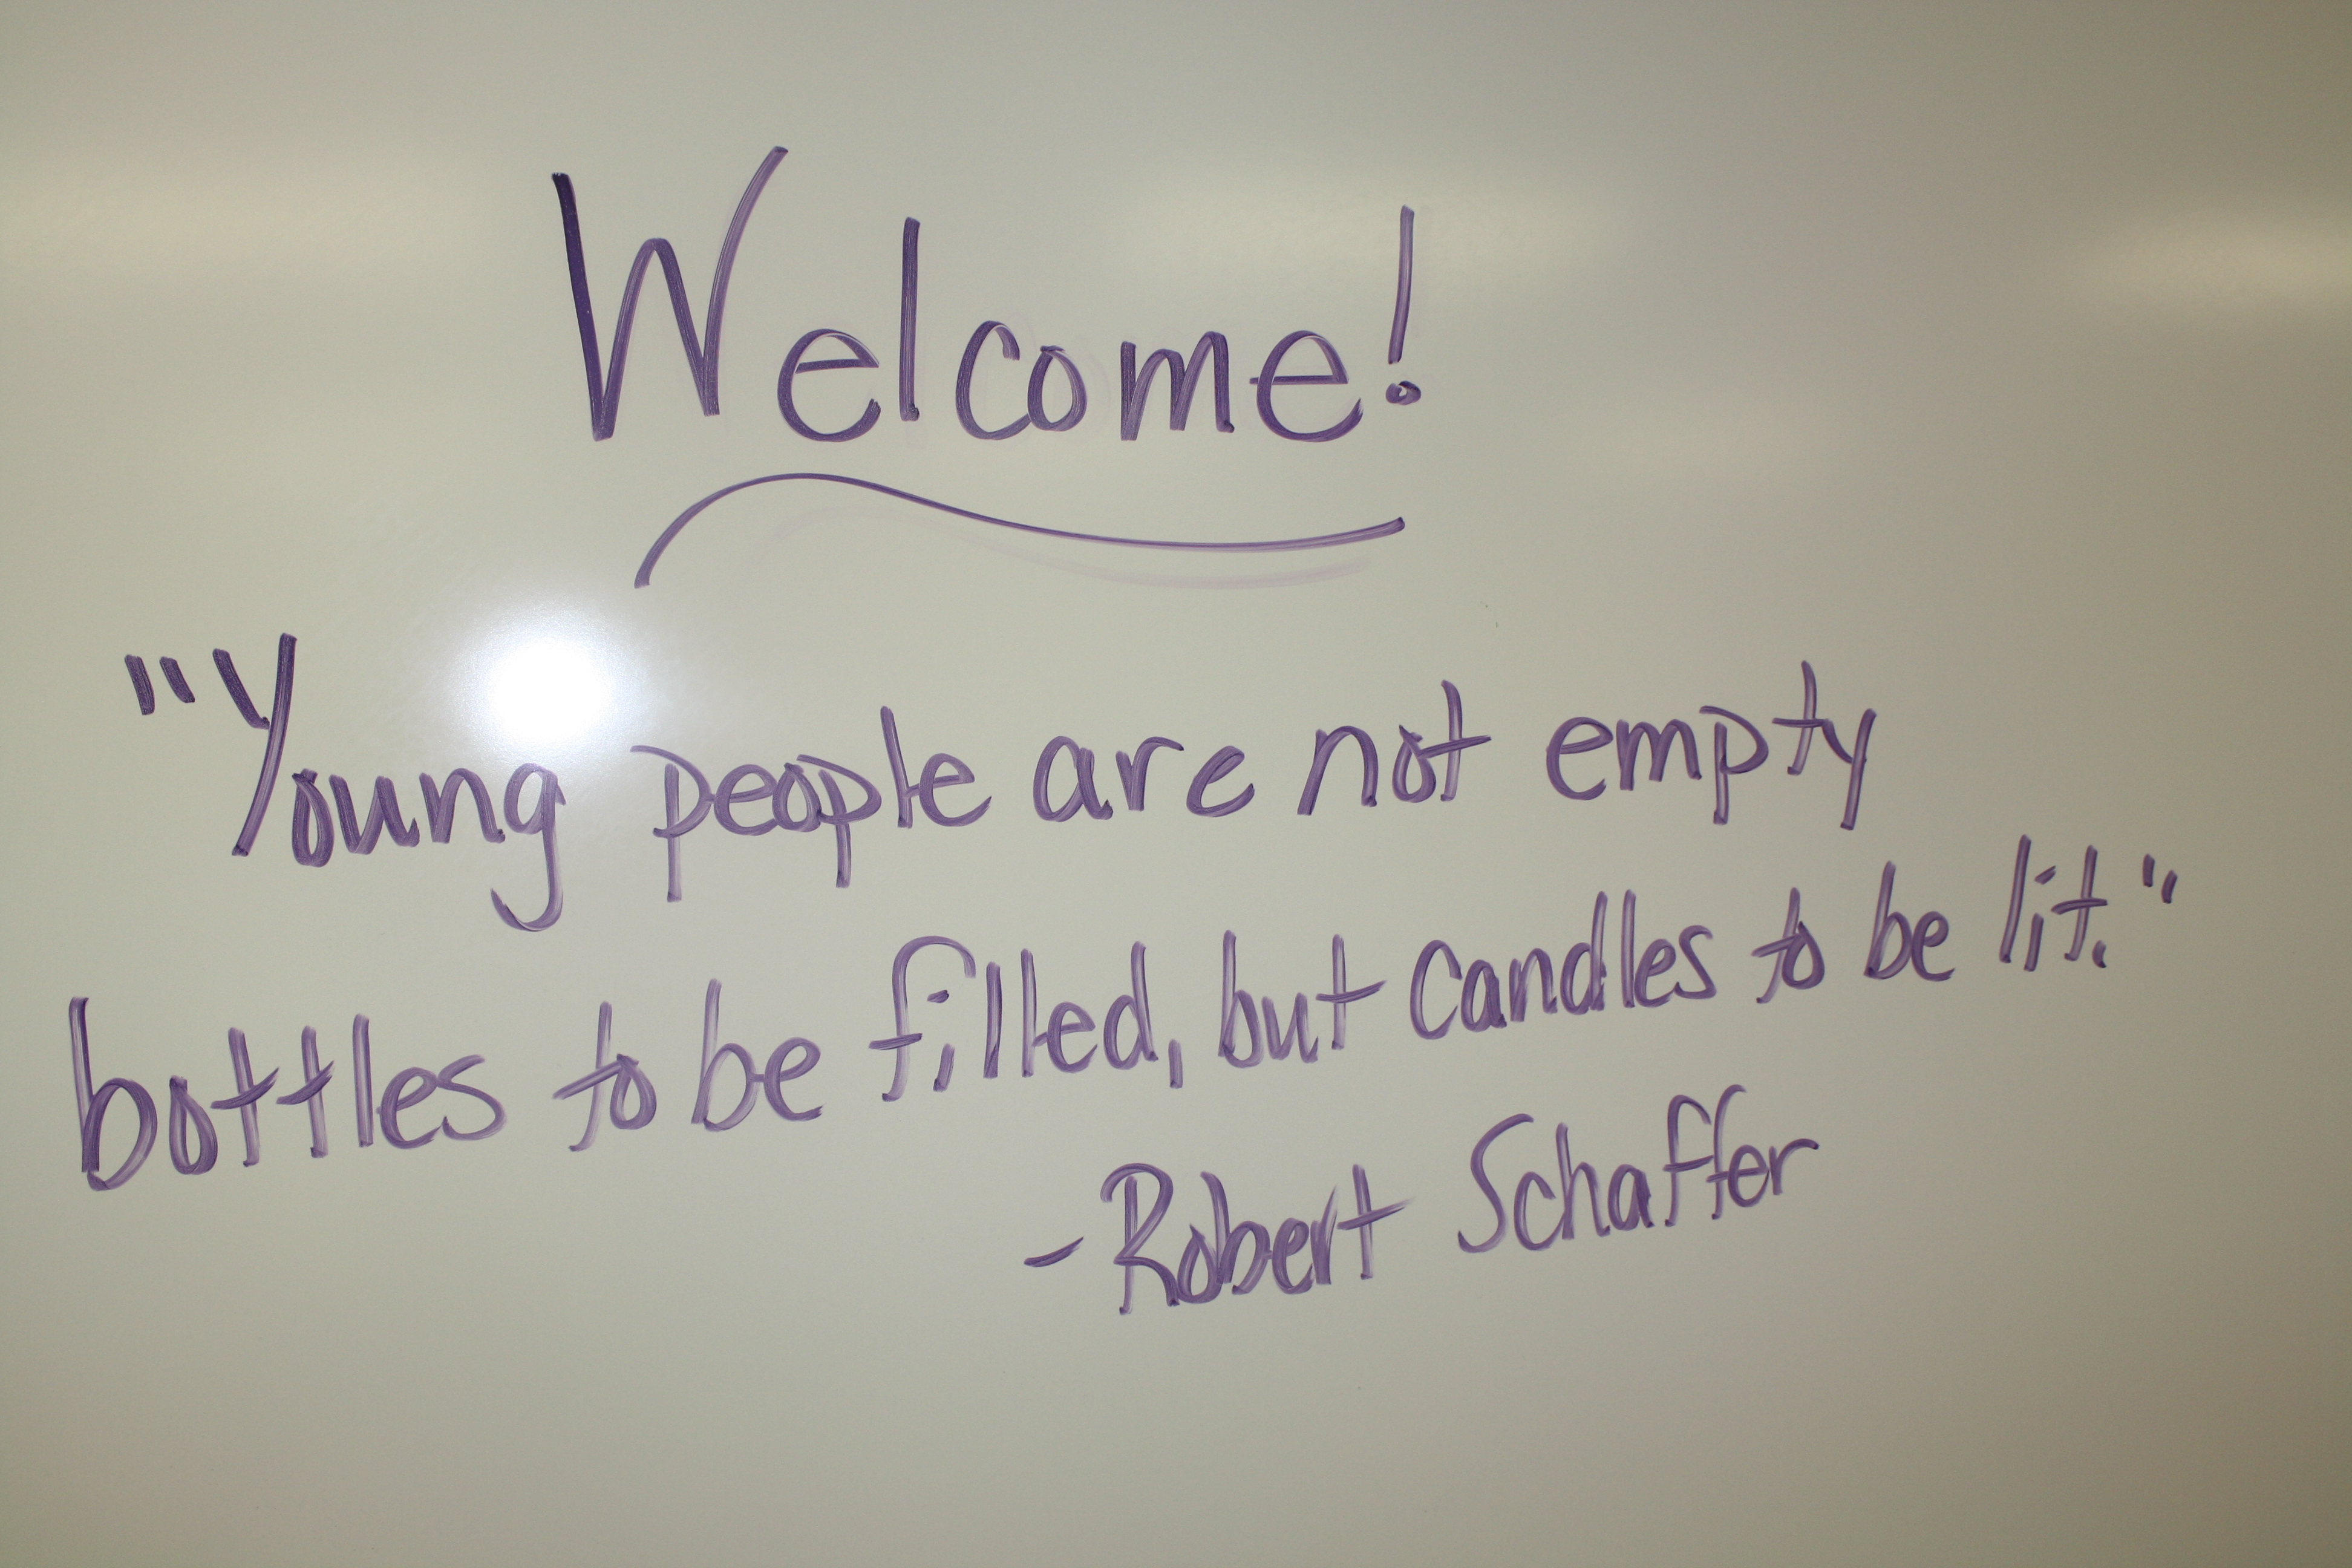 Welcome!
"Young people are not empty
bottles to be filled, but candles to be lit."
- Robert Schaffer